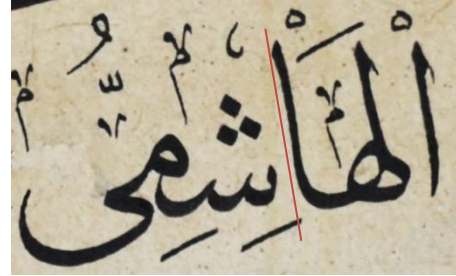 الْهَاشِمِيُّ